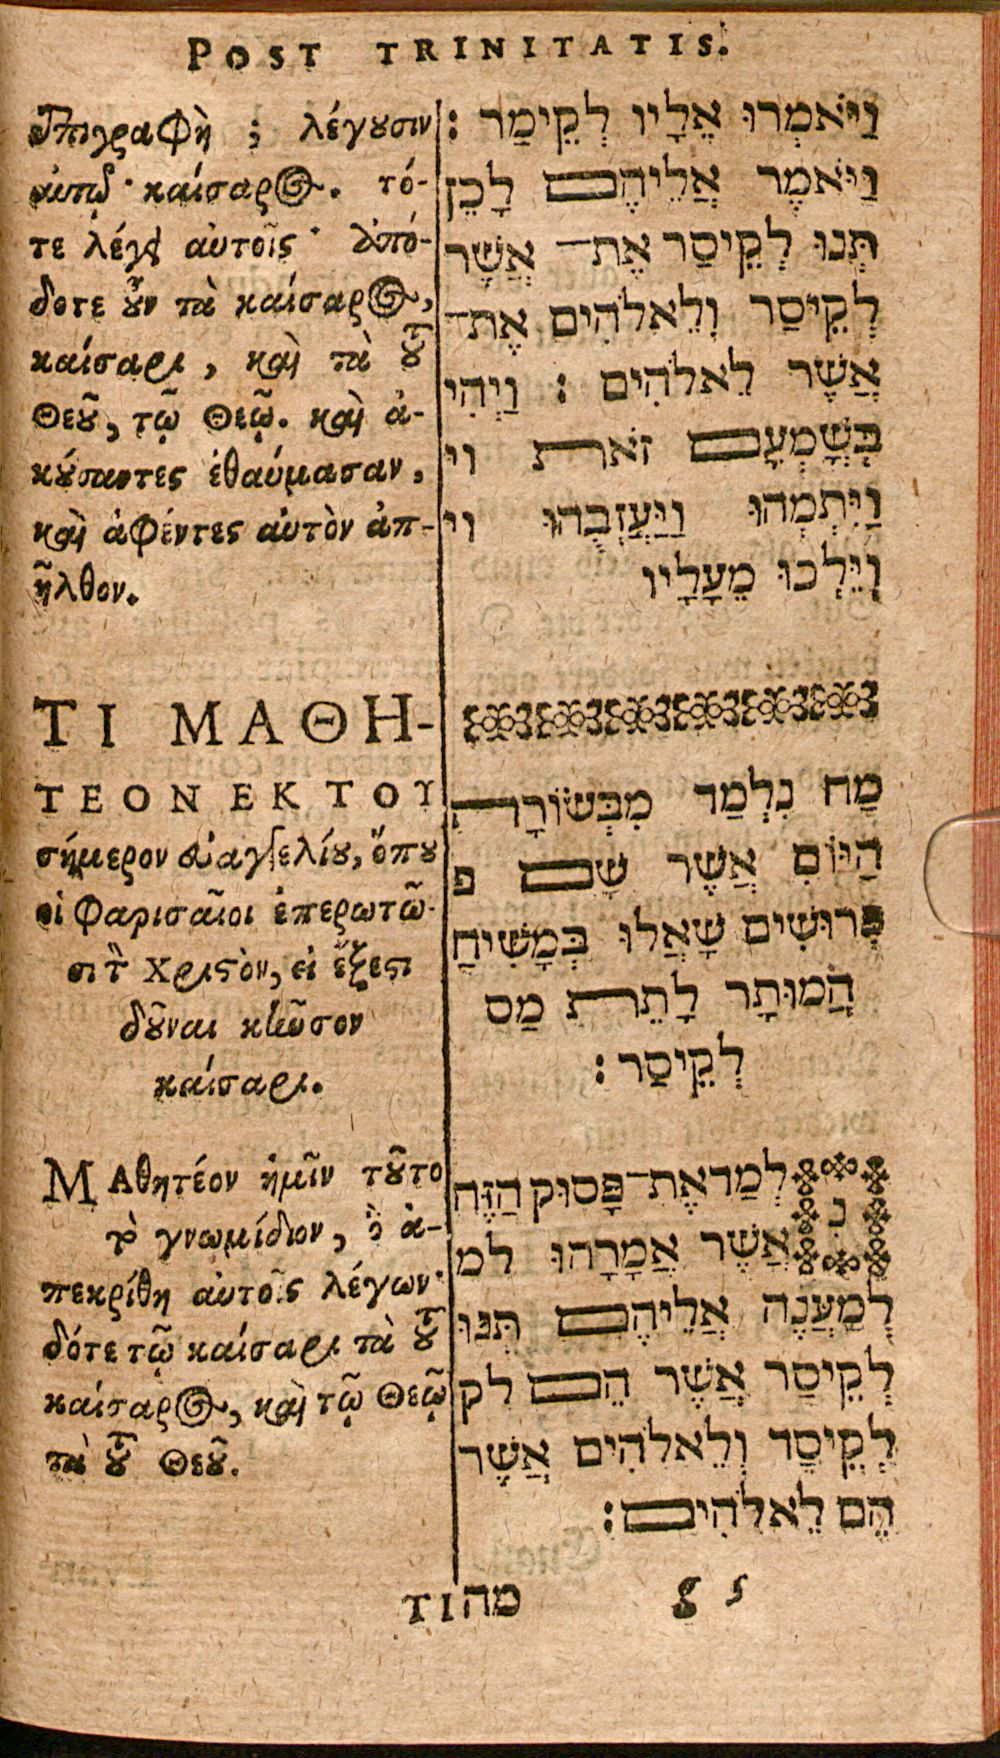 POST TRINITATIS.
ἐπιγραφὴ ; λέγουσιν
αὐτῷ· καίσαρος. τό-
τε λέγει αὐτοῖς· ἀπό-
δοτε οὖν τὰ καίσαρος,
καίσαρι, καὶ τὰ τοῦ
Θεοῦ, τῷ Θεῷ. καὶ ἀ-
κούσαντες ἐθαύμασαν,
καὶ ἀφέντες αὐτὸν ἀπ-
ῆλθον.
ΤΙ ΜΑΘΗ-
ΤΕΟΝ ΕΚ ΤΟΥ
σήμερον εὐαγγελίου, ὅπου
οἱ Φαρισαῖοι ἐπερωτῶ-
σι τὸν Χριστὸν, εἰ ἔξεστι
δοῦναι κῆνσον
καίσαρι.
ΜΑθητέον ἡμῖν τοῦτο
τὸ γνωμίδιον, ὃ ἀ-
πεκρίθη αὐτοῖς λέγων·
δότε τῷ καίσαρι τὰ τοῦ
καίσαρος, καὶ τῷ Θεῷ
τὰ τοῦ Θεοῦ.
וַיֹּאמְרוּ אֵלָיו לְקֵיסַר :
וַיֹּאמֶר אֲלֵיהֶם לָכֵן
תְּנוּ לְקֵיסַר אֶת־ אֲשֶׁר
לְקֵיסַר וְלֵאלֹהִים אֶת־
אֲשֶׁר לֵאלֹהִים : וַיְהִי
בְּשָׁמְעָם זֹאת וי
וַיִּתְמְהוּ וַיַּעֲזְבֻהוּ וי
וַיֵּלְכוּ מֵעָלָיו
מַה נִלְמַד מִבְּשׂוֹרָה
הַיּוֹם אֲשֶׁר שָׁם פ
פְּרוּשִׁים שָׁאֲלוּ בְּמָשִׁיחַ
הֲמוּתָר לָתֵת מַס
לְקֵיסַר :
נִלְמַד אֶת־פָּסוּק הַזֶּה
אֲשֶׁר אֲמָרָהוּ למ
לְמַעֲנֶה אֲלֵיהֶם תְּנוּ
לְקֵיסַר אֲשֶׁר הֵם לק
לְקֵיסַר וְלֵאלֹהִים אֲשֶׁר
הֶם לֵאלֹהִים :
ΤΙ מה g 5